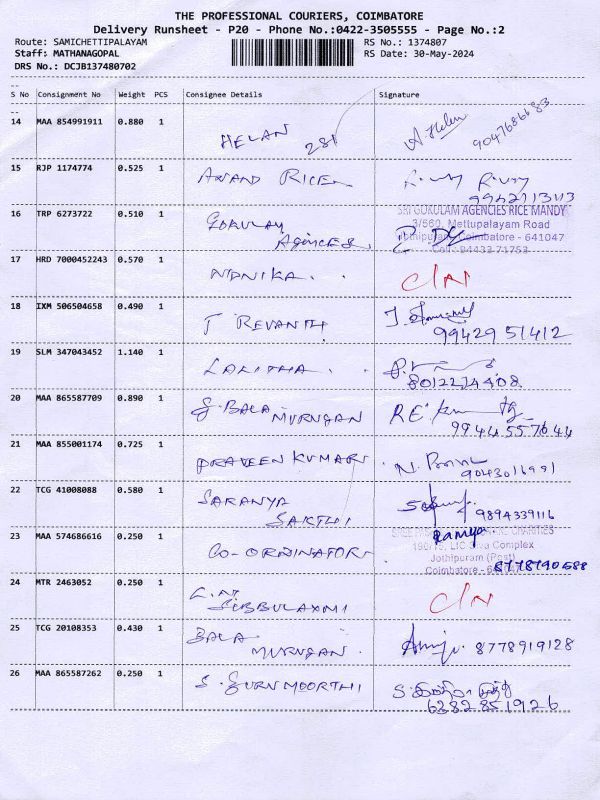 THE PROFESSIONAL COURIERS, COIMBATORE
Delivery Runsheet - P20 - Phone No.:0422-3505555 - Page No.:2
Route: SAMICHETTIPALAYAM RS No.: 1374807
Staff: MATHANAGOPAL RS Date: 30-May-2024
DRS No.: DCJB137480702
S No Consignment No Weight PCS Consignee Details Signature
14 MAA 854991911 0.880 1
HELAN 281 A Helen 9047686683
15 RJP 1174774 0.525 1
ANAND RICE
16 TRP 6273722 0.510 1
GOKULAM AGENCIES
SRI GOKULAM AGENCIES RICE MANDY
3/560, Mettupalayam Road
Jothipuram, Coimbatore - 641047
Cell : 94433 71753
17 HRD 7000452243 0.570 1
C/N
18 IXM 506504658 0.490 1
T REVANTH
99429 51412
19 SLM 347043452 1.140 1
LALITHA
8012274408
20 MAA 865587709 0.890 1
BALA MURUGAN
9944557644
21 MAA 855001174 0.725 1
PRAVEEN KUMAR
9043016991
22 TCG 41008088 0.580 1
SARANYA
SAKTHI 9894339116
23 MAA 574686616 0.250 1
CO-ORDINATOR
Ramya
LIC Siva Complex
Jothipuram (Post)
Coimbatore - 641047 8778790588
24 MTR 2463052 0.250 1
SUBBULAXMI C/N
25 TCG 20108353 0.430 1
BALA
MURUGAN 8778919128
26 MAA 865587262 0.250 1
S. GURU MOORTHI
6382851926